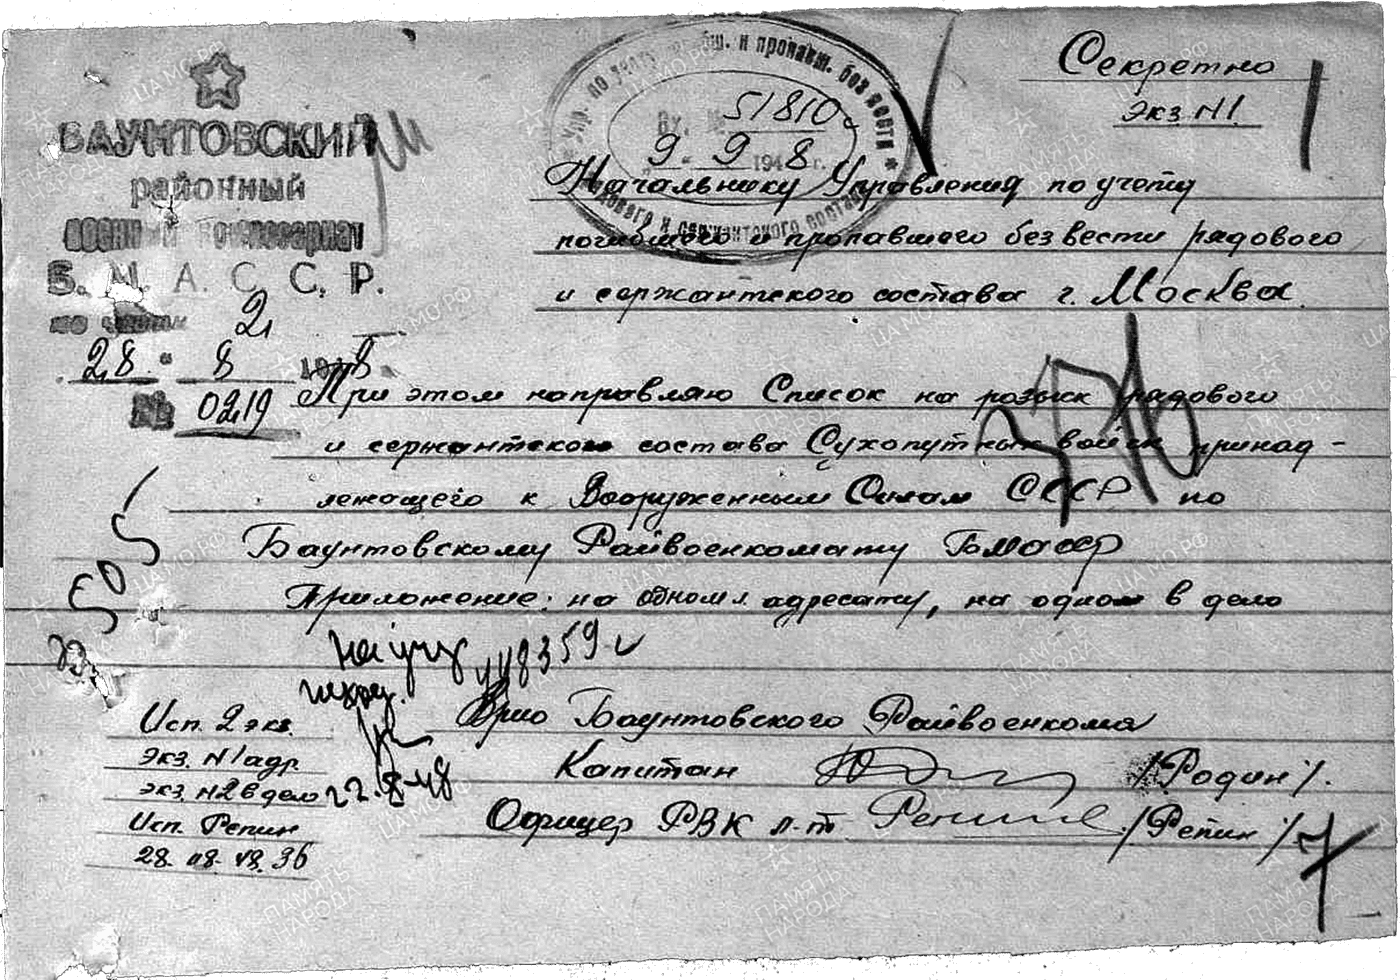 Секретно
Экз. N1.
БАУНТОВСКИЙ
районный
военный комиссариат
Б. М. А. С. С. Р.
по части 2
28 " 8 1948
№ 0219
Упр. по учету погибш. и пропавш. без вести
рядового и сержантского состава
Вх. № 51810
9 " 9 1948 г.
Начальнику Управления по учету
погибшего и пропавшего без вести рядового
и сержантского состава г. Москва.
При этом направляю Список на розыск рядового
и сержантского состава Сухопутных войск принад-
лежащего к Вооруженным Силам СССР по
Баунтовскому Райвоенкомату БМАССР
Приложение: на одном л. адресату, на одном в дело
48359
505
Врио Баунтовского Райвоенкома
Капитан /Родин/.
Офицер РВК л-т Репин /Репин/
Исп. 2 экз.
Экз. N1 адр.
экз. N2 в дело
Исп. Репин
28. 08. 48. 36
22.8-48
ПАМЯТЬ НАРОДА
ЦАМО.РФ